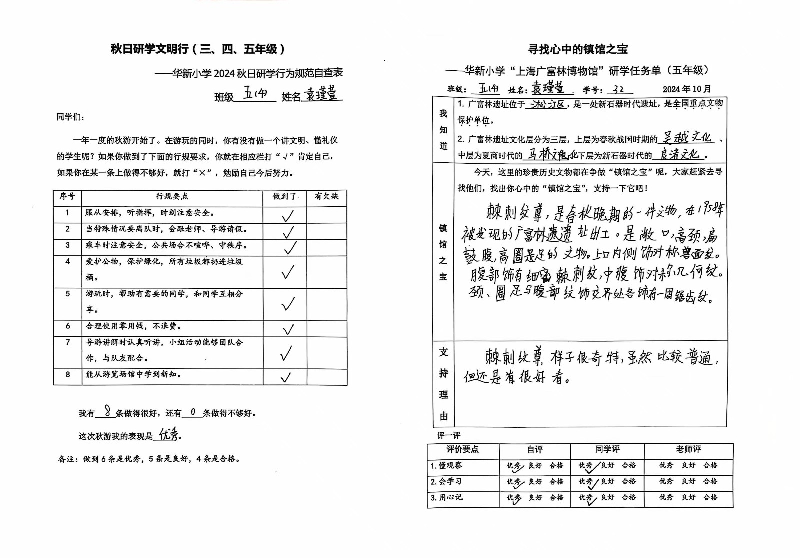 秋日研学文明行（三、四、五年级）
——华新小学2024秋日研学行为规范自查表
班级 五(4) 姓名 袁瑾萱
同学们：
一年一度的秋游开始了。在游玩的同时，你有没有做一个讲文明、懂礼仪
的学生呢？如果你做到了下面的行规要求，你就在相应栏打“√”肯定自己，
如果你在某一条上做得不够好，就打“×”，勉励自己今后努力。
序号 行规要点 做到了 有欠缺
1 服从安排，听指挥，时刻注意安全。 √
2 当特殊情况要离队时，会跟老师、导游请假。 √
3 乘车时注意安全，公共场合不喧哗、守秩序。 √
4 爱护公物，保护绿化，所有垃圾都扔进垃圾
桶。 √
5 游玩时，帮助有需要的同学，和同学互相分
享。 √
6 合理使用零用钱，不浪费。 √
7 导游讲解时认真听讲，小组活动能够团队合
作，与队友配合。 √
8 能从游览场馆中学到新知。 √
我有 8 条做得很好，还有 0 条做得不够好。
这次秋游我的表现是 优秀。
备注：做到6条是优秀，5条是良好，4条是合格。
寻找心中的镇馆之宝
——华新小学“上海广富林博物馆”研学任务单（五年级）
班级：五(4) 姓名：袁瑾萱 学号：32 2024年10月
我知道
1. 广富林遗址位于 松江区，是一处新石器时代遗址，是全国重点文物
保护单位，
2. 广富林遗址文化层分为三层，上层为春秋战国时期的 吴越文化、
中层为夏商时代的 马桥文化 下层为新石器时代的 良渚文化。
镇馆之宝
今天，这里的珍贵历史文物都在争做“镇馆之宝”呢，大家赶紧去寻
找他们，找出你心中的“镇馆之宝”，支持一下它吧！
棘刺纹尊，是春秋晚期的一件文物，在1958年
被发现的广富林遗址出土。是敞口，高颈，扁
鼓腹，高圈足的文物。上口内侧饰对称
腹部饰有细密棘刺纹，中腹饰对称几何纹。
颈、圈足与腹部纹饰交界处各饰有一周锯齿纹。
支持理由
棘刺纹尊，样子很奇特，虽然比较普通，
但还是有很好看。
评一评
评价要点 自评 同学评 老师评
1.懂观察 优秀√ 良好 合格 优秀√ 良好 合格 优秀 良好 合格
2.会学习 优秀√ 良好 合格 优秀√ 良好 合格 优秀 良好 合格
3.用心记 优秀√ 良好 合格 优秀√ 良好 合格 优秀 良好 合格